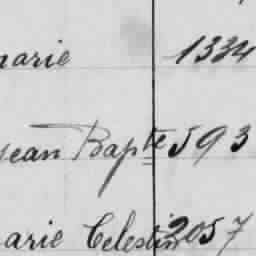 marie 1334
Jean Bapte 593
Marie Celestin 2057